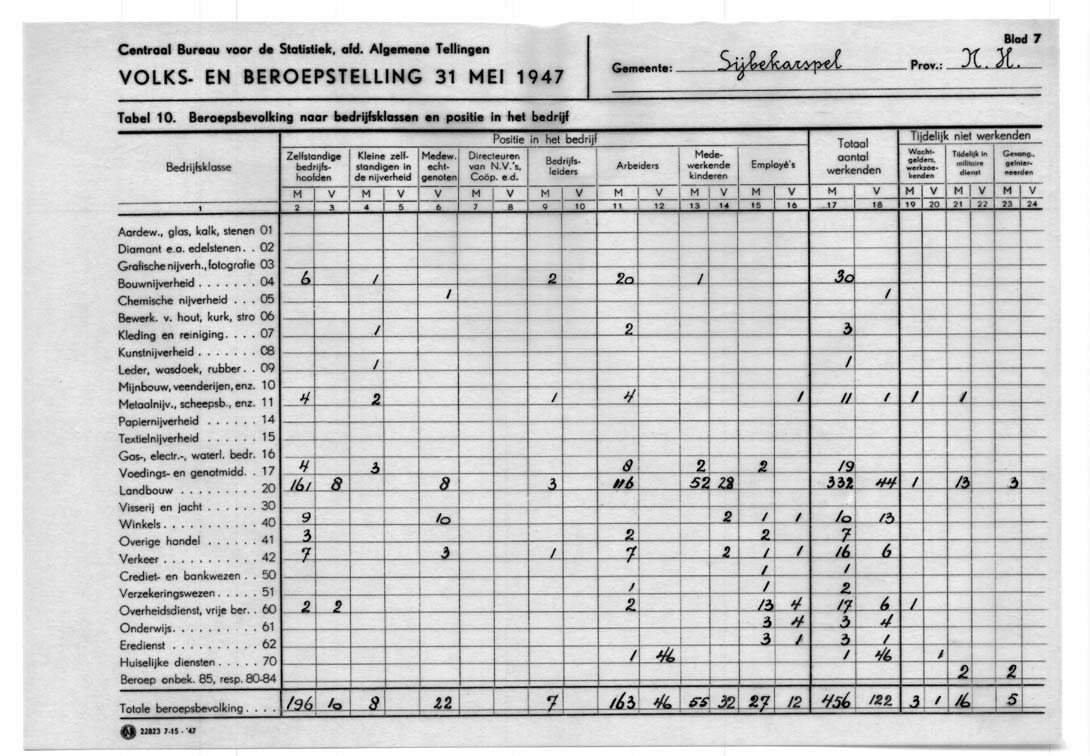 Centraal Bureau voor de Statistiek, afd. Algemene Tellingen
VOLKS- EN BEROEPSTELLING 31 MEI 1947
Gemeente: Sijbekarspel Prov.: N. H.
Blad 7
Tabel 10. Beroepsbevolking naar bedrijfsklassen en positie in het bedrijf
Bedrijfsklasse
Positie in het bedrijf
Zelfstandige bedrijfs-hoofden
Kleine zelf-standigen in de nijverheid
Medew. echt-genoten
Directeuren van N.V.'s, Coöp. e.d.
Bedrijfs-leiders
Arbeiders
Mede-werkende kinderen
Employé's
Totaal aantal werkenden
Tijdelijk niet werkenden
Wacht-gelders, werkzoe-kenden
Tijdelijk in militaire dienst
Gevang., geïnter-neerden
M V M V V M V M V M V M V M V M V M V M V M V
1 2 3 4 5 6 7 8 9 10 11 12 13 14 15 16 17 18 19 20 21 22 23 24
Aardew., glas, kalk, stenen 01
Diamant e.a. edelstenen . . 02
Grafische nijverh., fotografie 03
Bouwnijverheid . . . . . . . 04 6 1 2 20 1 30
Chemische nijverheid . . . 05 1 1
Bewerk. v. hout, kurk, stro 06
Kleding en reiniging. . . . 07 1 2 3
Kunstnijverheid . . . . . . . 08
Leder, wasdoek, rubber. . 09 1 1
Mijnbouw, veenderijen, enz. 10
Metaalnijv., scheepsb., enz. 11 4 2 1 4 1 11 1 1 1
Papiernijverheid . . . . . . 14
Textielnijverheid . . . . . . 15
Gas-, electr.-, waterl. bedr. 16
Voedings- en genotmidd. . 17 4 3 8 2 2 19
Landbouw . . . . . . . . . 20 161 8 8 3 116 52 28 332 44 1 13 3
Visserij en jacht . . . . . . 30
Winkels. . . . . . . . . . . 40 9 10 2 1 1 10 13
Overige handel . . . . . . 41 3 2 2 7
Verkeer . . . . . . . . . . . 42 7 3 1 7 2 1 1 16 6
Crediet- en bankwezen . . 50 1 1
Verzekeringswezen. . . . . 51 1 1 2
Overheidsdienst, vrije ber. . 60 2 2 2 13 4 17 6 1
Onderwijs. . . . . . . . . . 61 3 4 3 4
Eredienst . . . . . . . . . . 62 3 1 3 1
Huiselijke diensten . . . . . 70 1 46 1 46 1
Beroep onbek. 85, resp. 80-84 2 2
Totale beroepsbevolking . . . . 196 10 8 22 7 163 46 55 32 27 12 456 122 3 1 16 5
22823 7-15 - '47